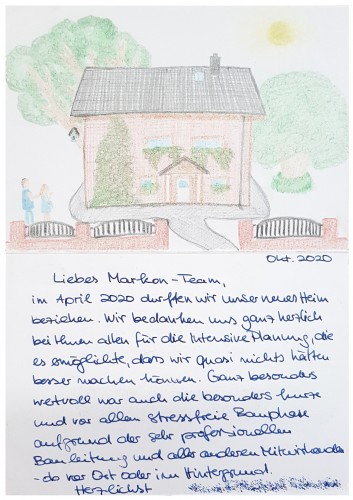 Okt. 2020
Liebes Markon-Team,
im April 2020 durften wir unser neues Heim
beziehen. Wir bedanken uns ganz herzlich
bei Ihnen allen für die Intensive Planung, die
es ermöglichte, dass wir quasi nichts hätten
besser machen können. Ganz besonders
wertvoll war auch die besonders kurze
und vor allen stressfreie Bauphase
aufgrund der sehr professionellen
Bauleitung und aller anderen Mitwirkenden
- da vor Ort oder im Hintergrund.
Herzlichst